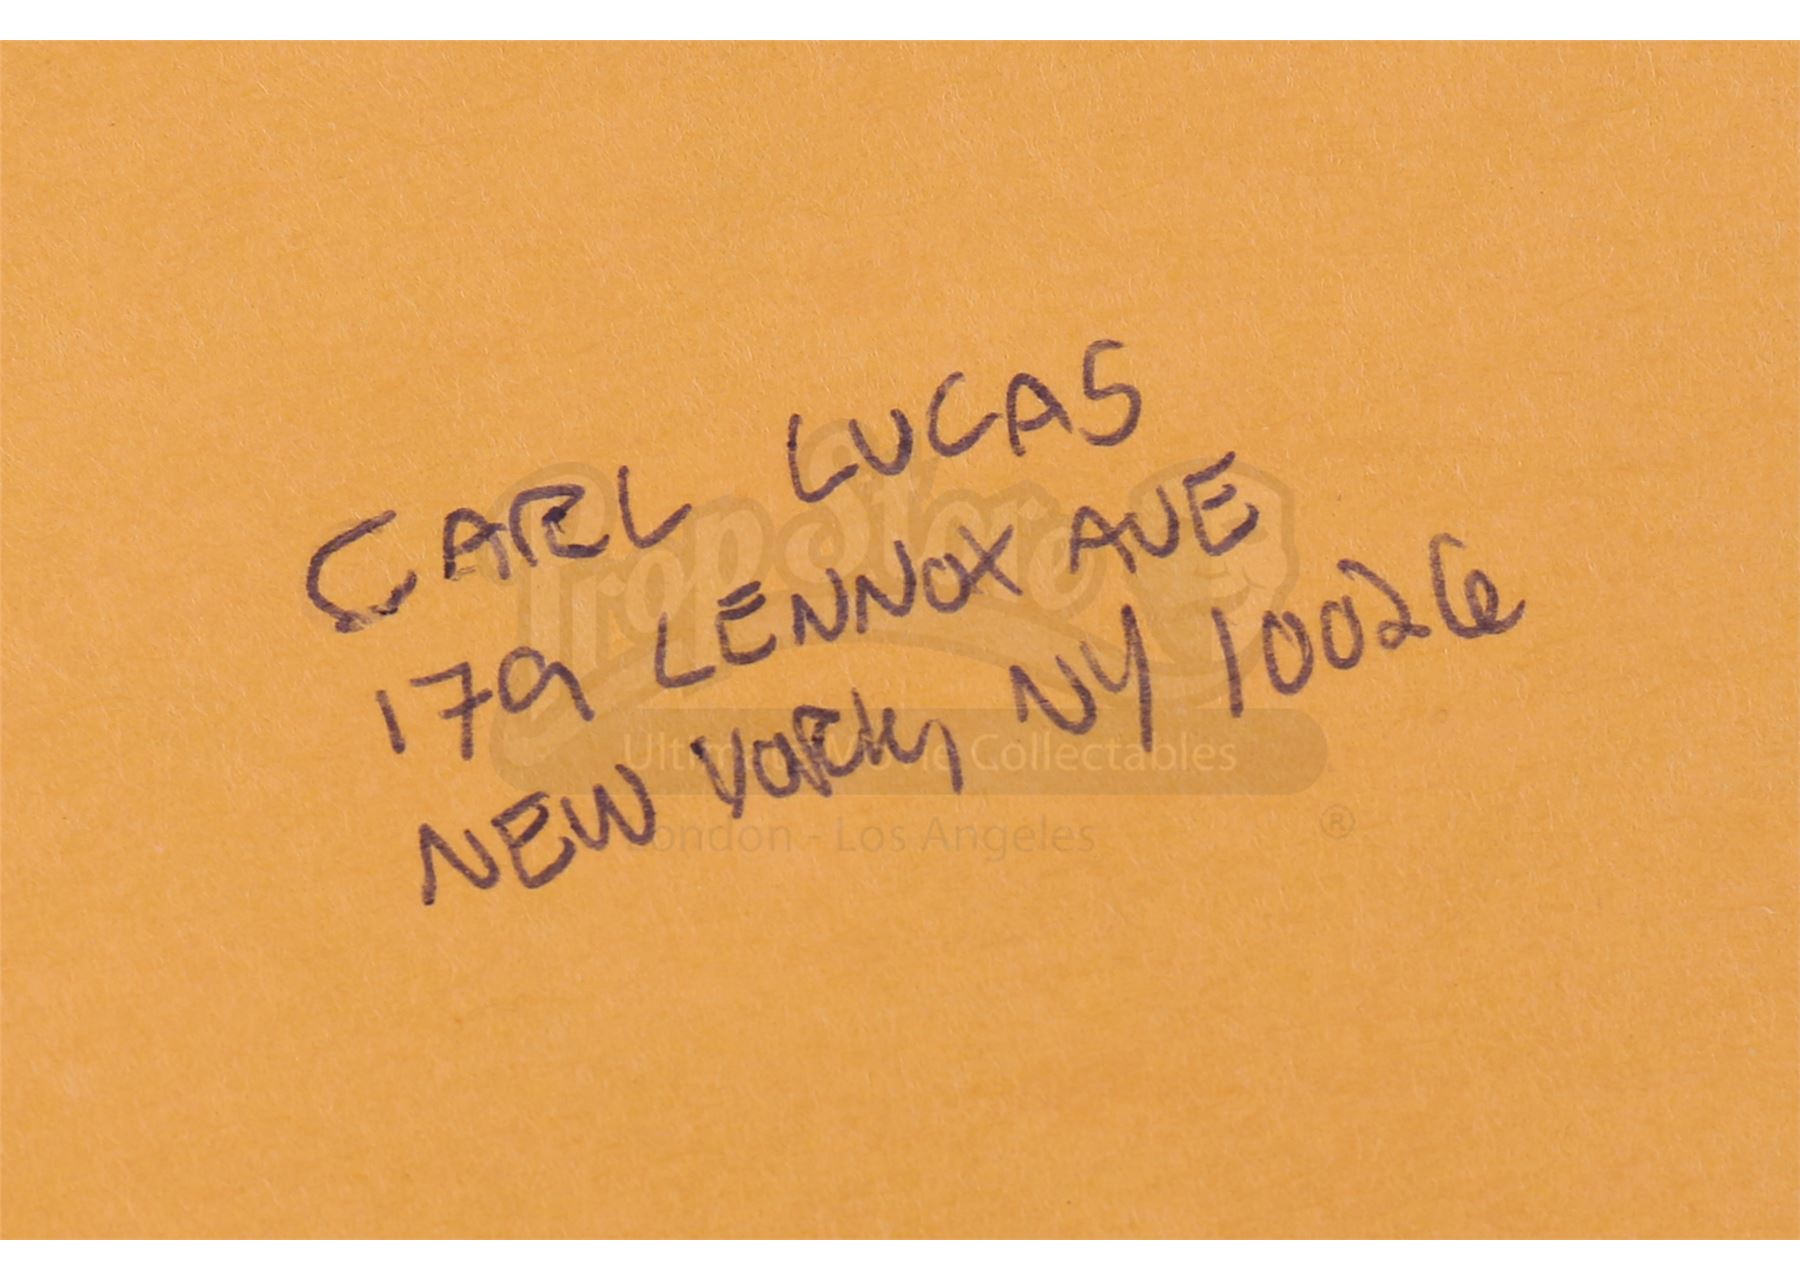 CARL LUCAS
179 LENNOX AVE
NEW YORK, NY 10026
Prop Store
Ultimate Movie Collectables
London - Los Angeles
®